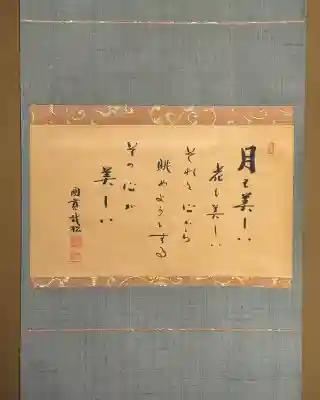 月も美しい
花も美しい
それを心から
眺めようとする
その心が
美しい